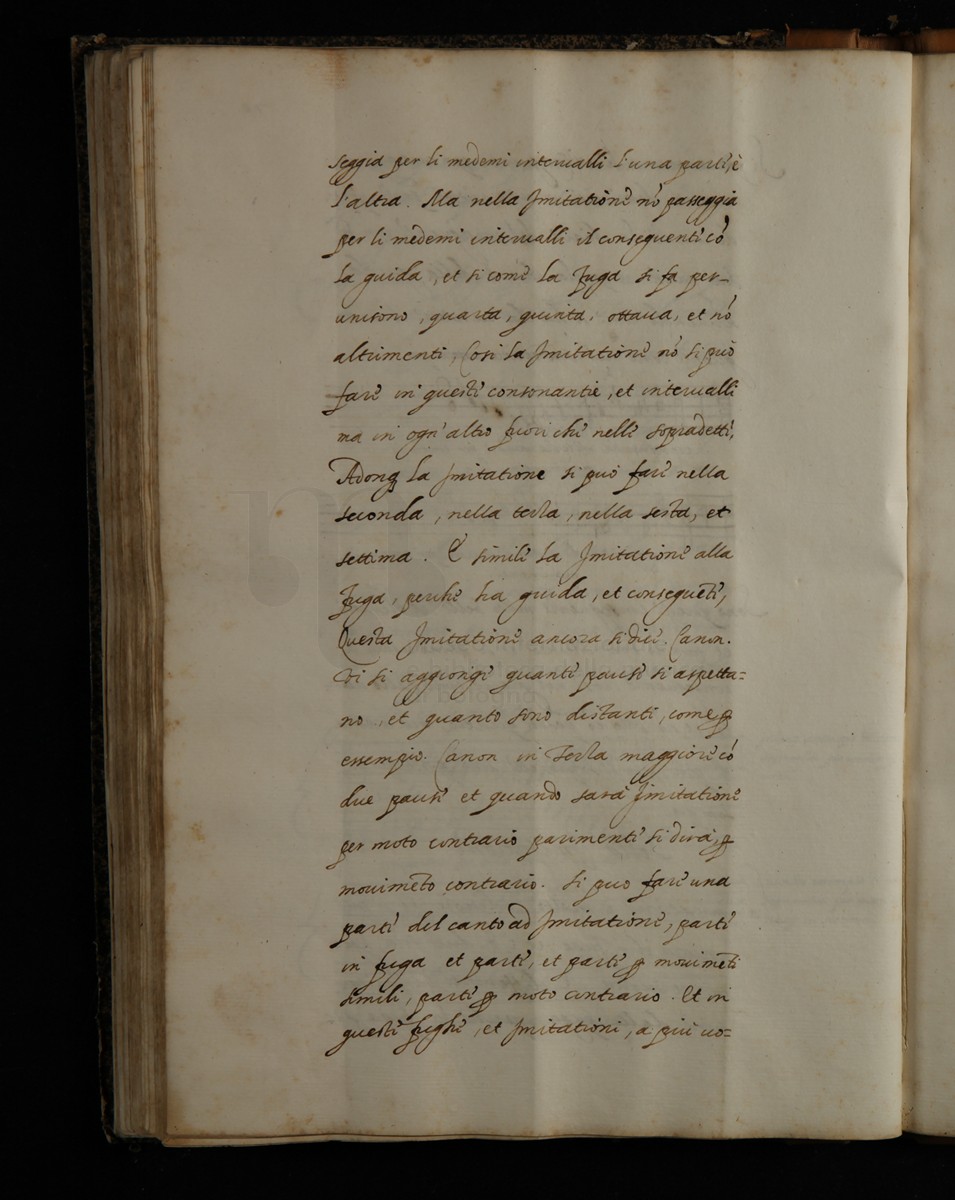 seggia per li medemi interualli l'una parte, è
l'altra. Ma nella Jmitatione nõ passeggia
per li medemi interualli il conseguente cõ
la guida, et si come la fuga si fa per-
unisono, quarta, quinta, ottaua, et nõ
altrimenti, Cosi la Jmitatione nõ si può
fare in queste consonantie, et interualli
ma in ogn'altro fuori che nelli sopradetti,
Adonq; la Jmitatione si può fare nella
seconda, nella terza, nella sesta, et
settima. È simile la Jmitatione alla
fuga, perche ha guida, et conseguẽte,
Questa Jmitatione ancora si dice. Canon.
Vi si aggionge quante pause si aspetta=
no, et quanto sono distanti, come ꝑ
essempio. Canon in Terza maggiore cõ
due pause et quando sarà Jmitatione
per moto contrario parimente si dirà, ꝑ
mouimẽto contrario. Si puo fare una
parte del canto ad Jmitatione, parte
in fuga et parte, et parte ꝑ mouimẽti
simili, parte ꝑ moto contrario. Et in
queste fughe, et Jmitationi, a più uo=